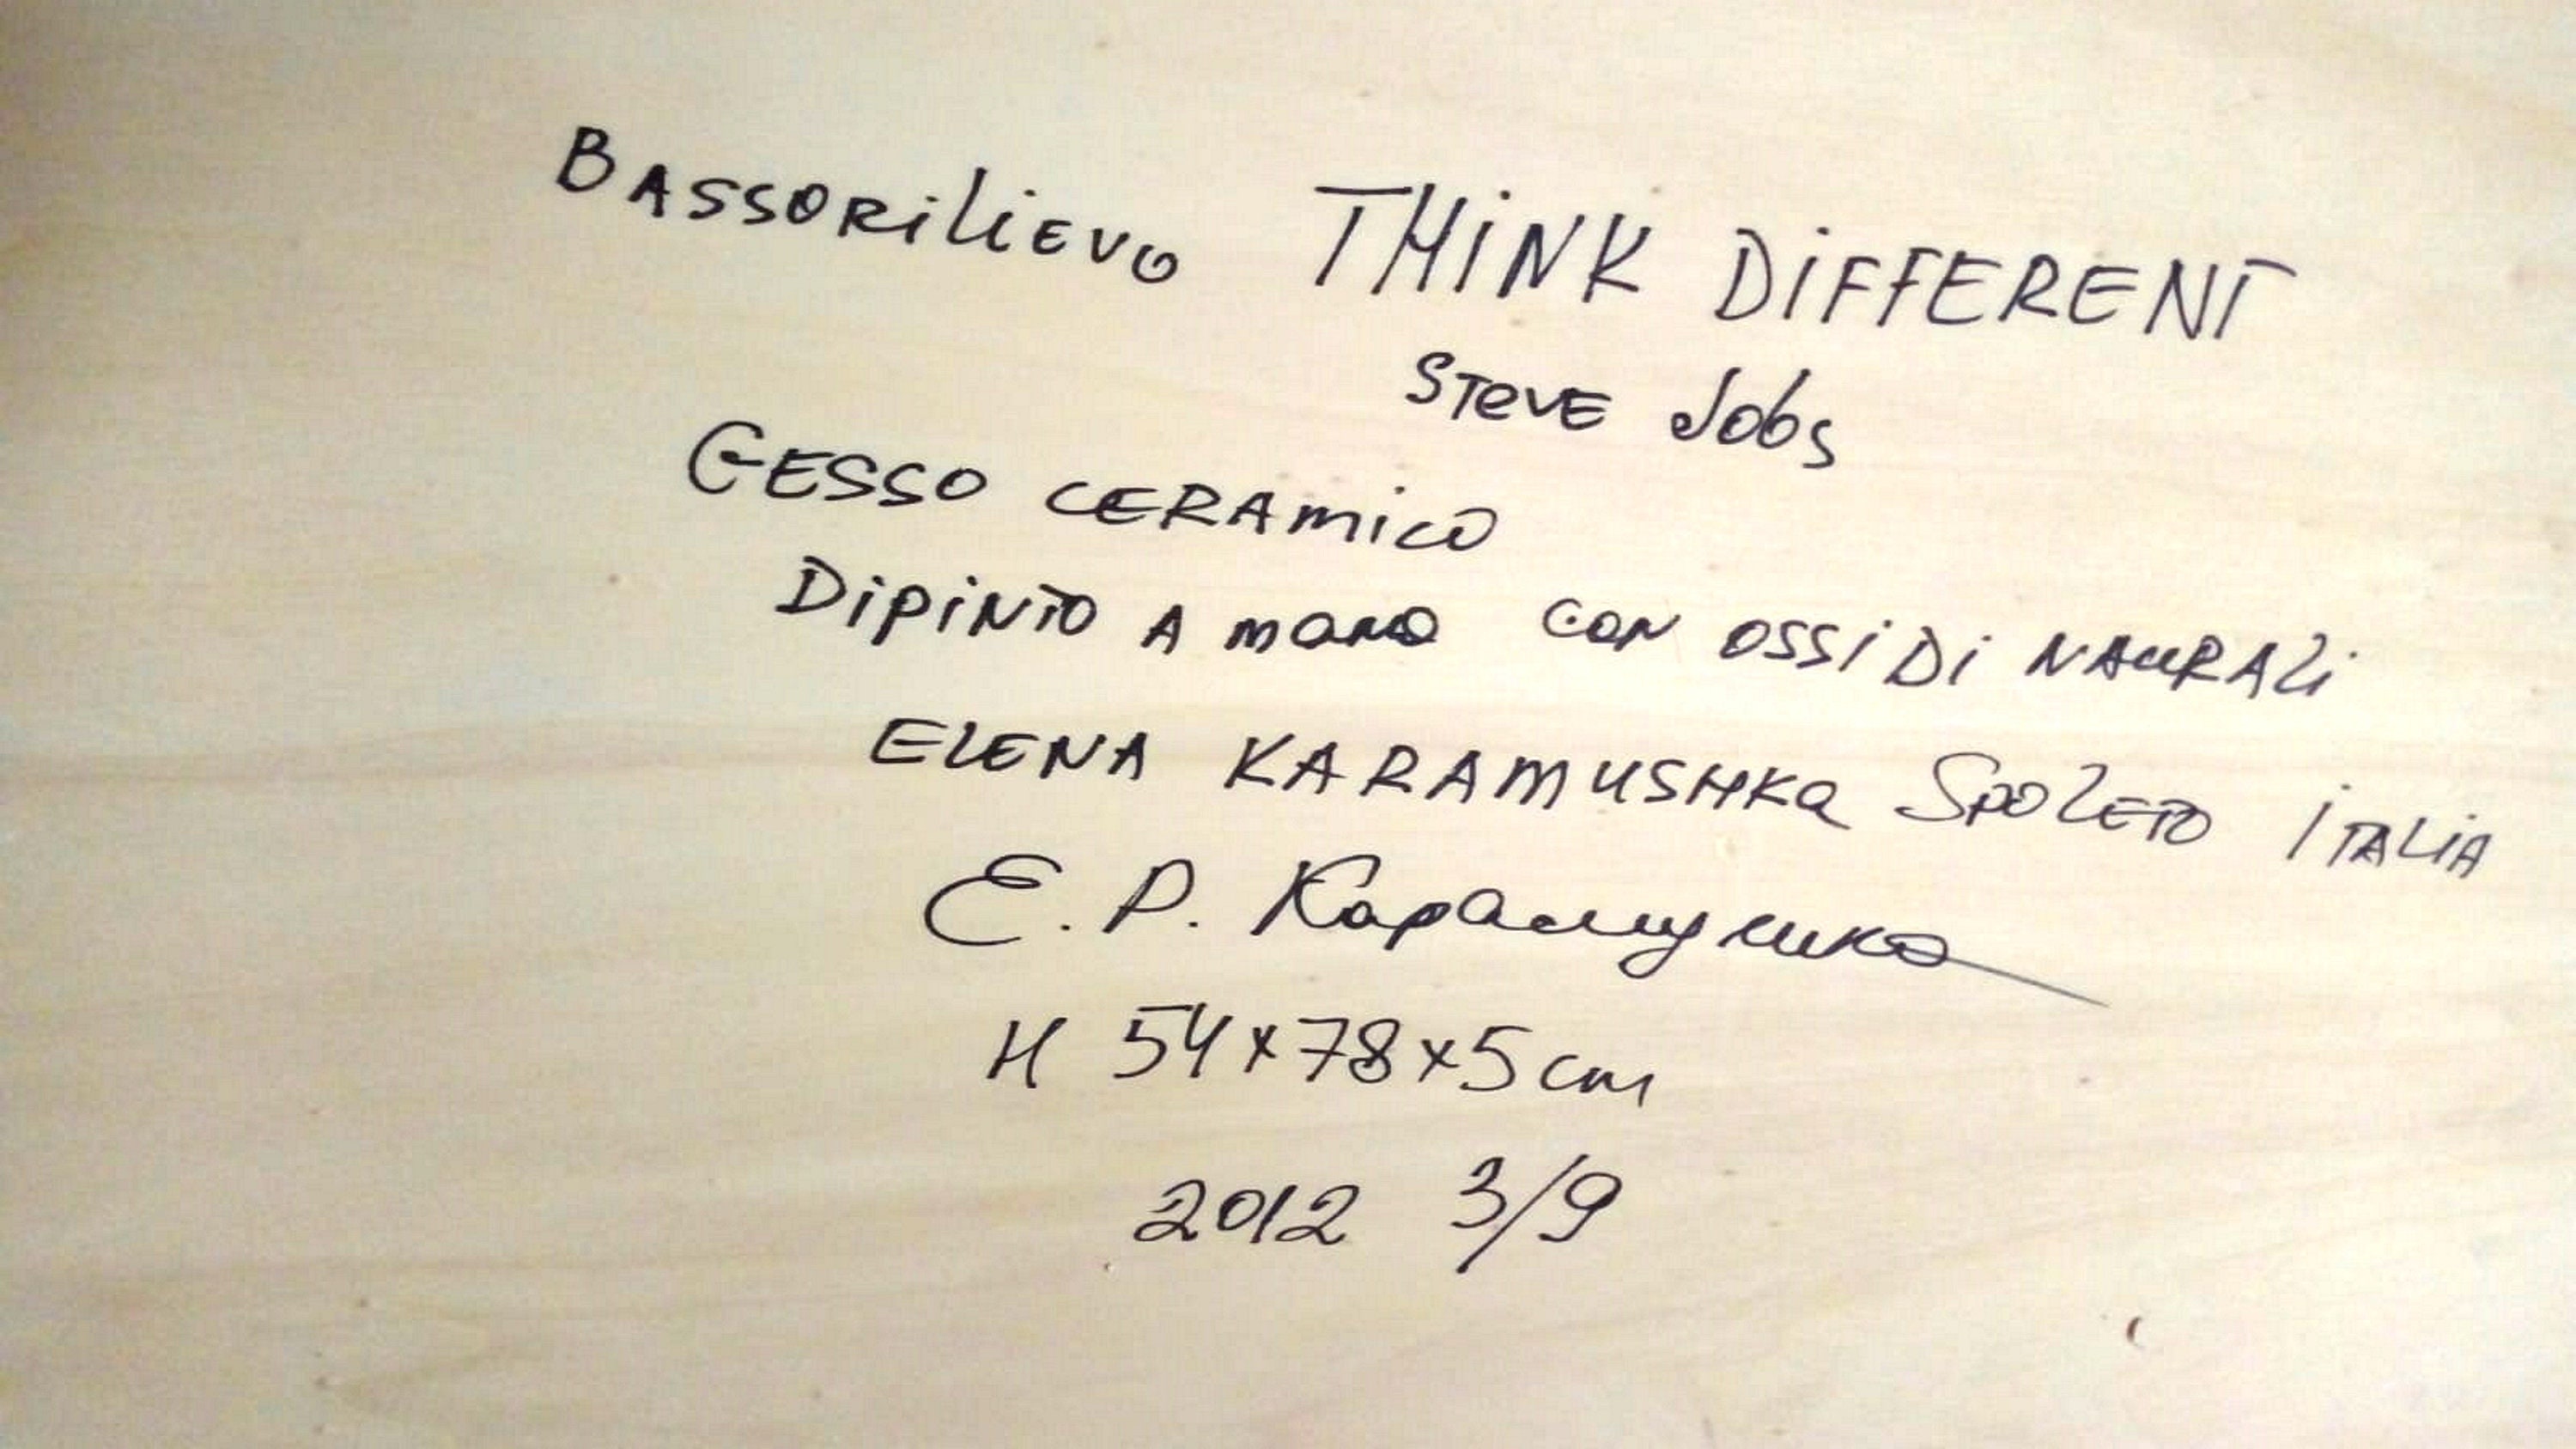 BASSORiLiEVO THiNK DiFFERENT
STEVE Jobs
GESSO CERAMiCO
DiPiNTO A mano CON OSSiDi NAURALi
ELENA KARAMUSHKa SPOLETO iTALiA
Е. Р. Карамушка
H 54x78x5cm
2012 3/9